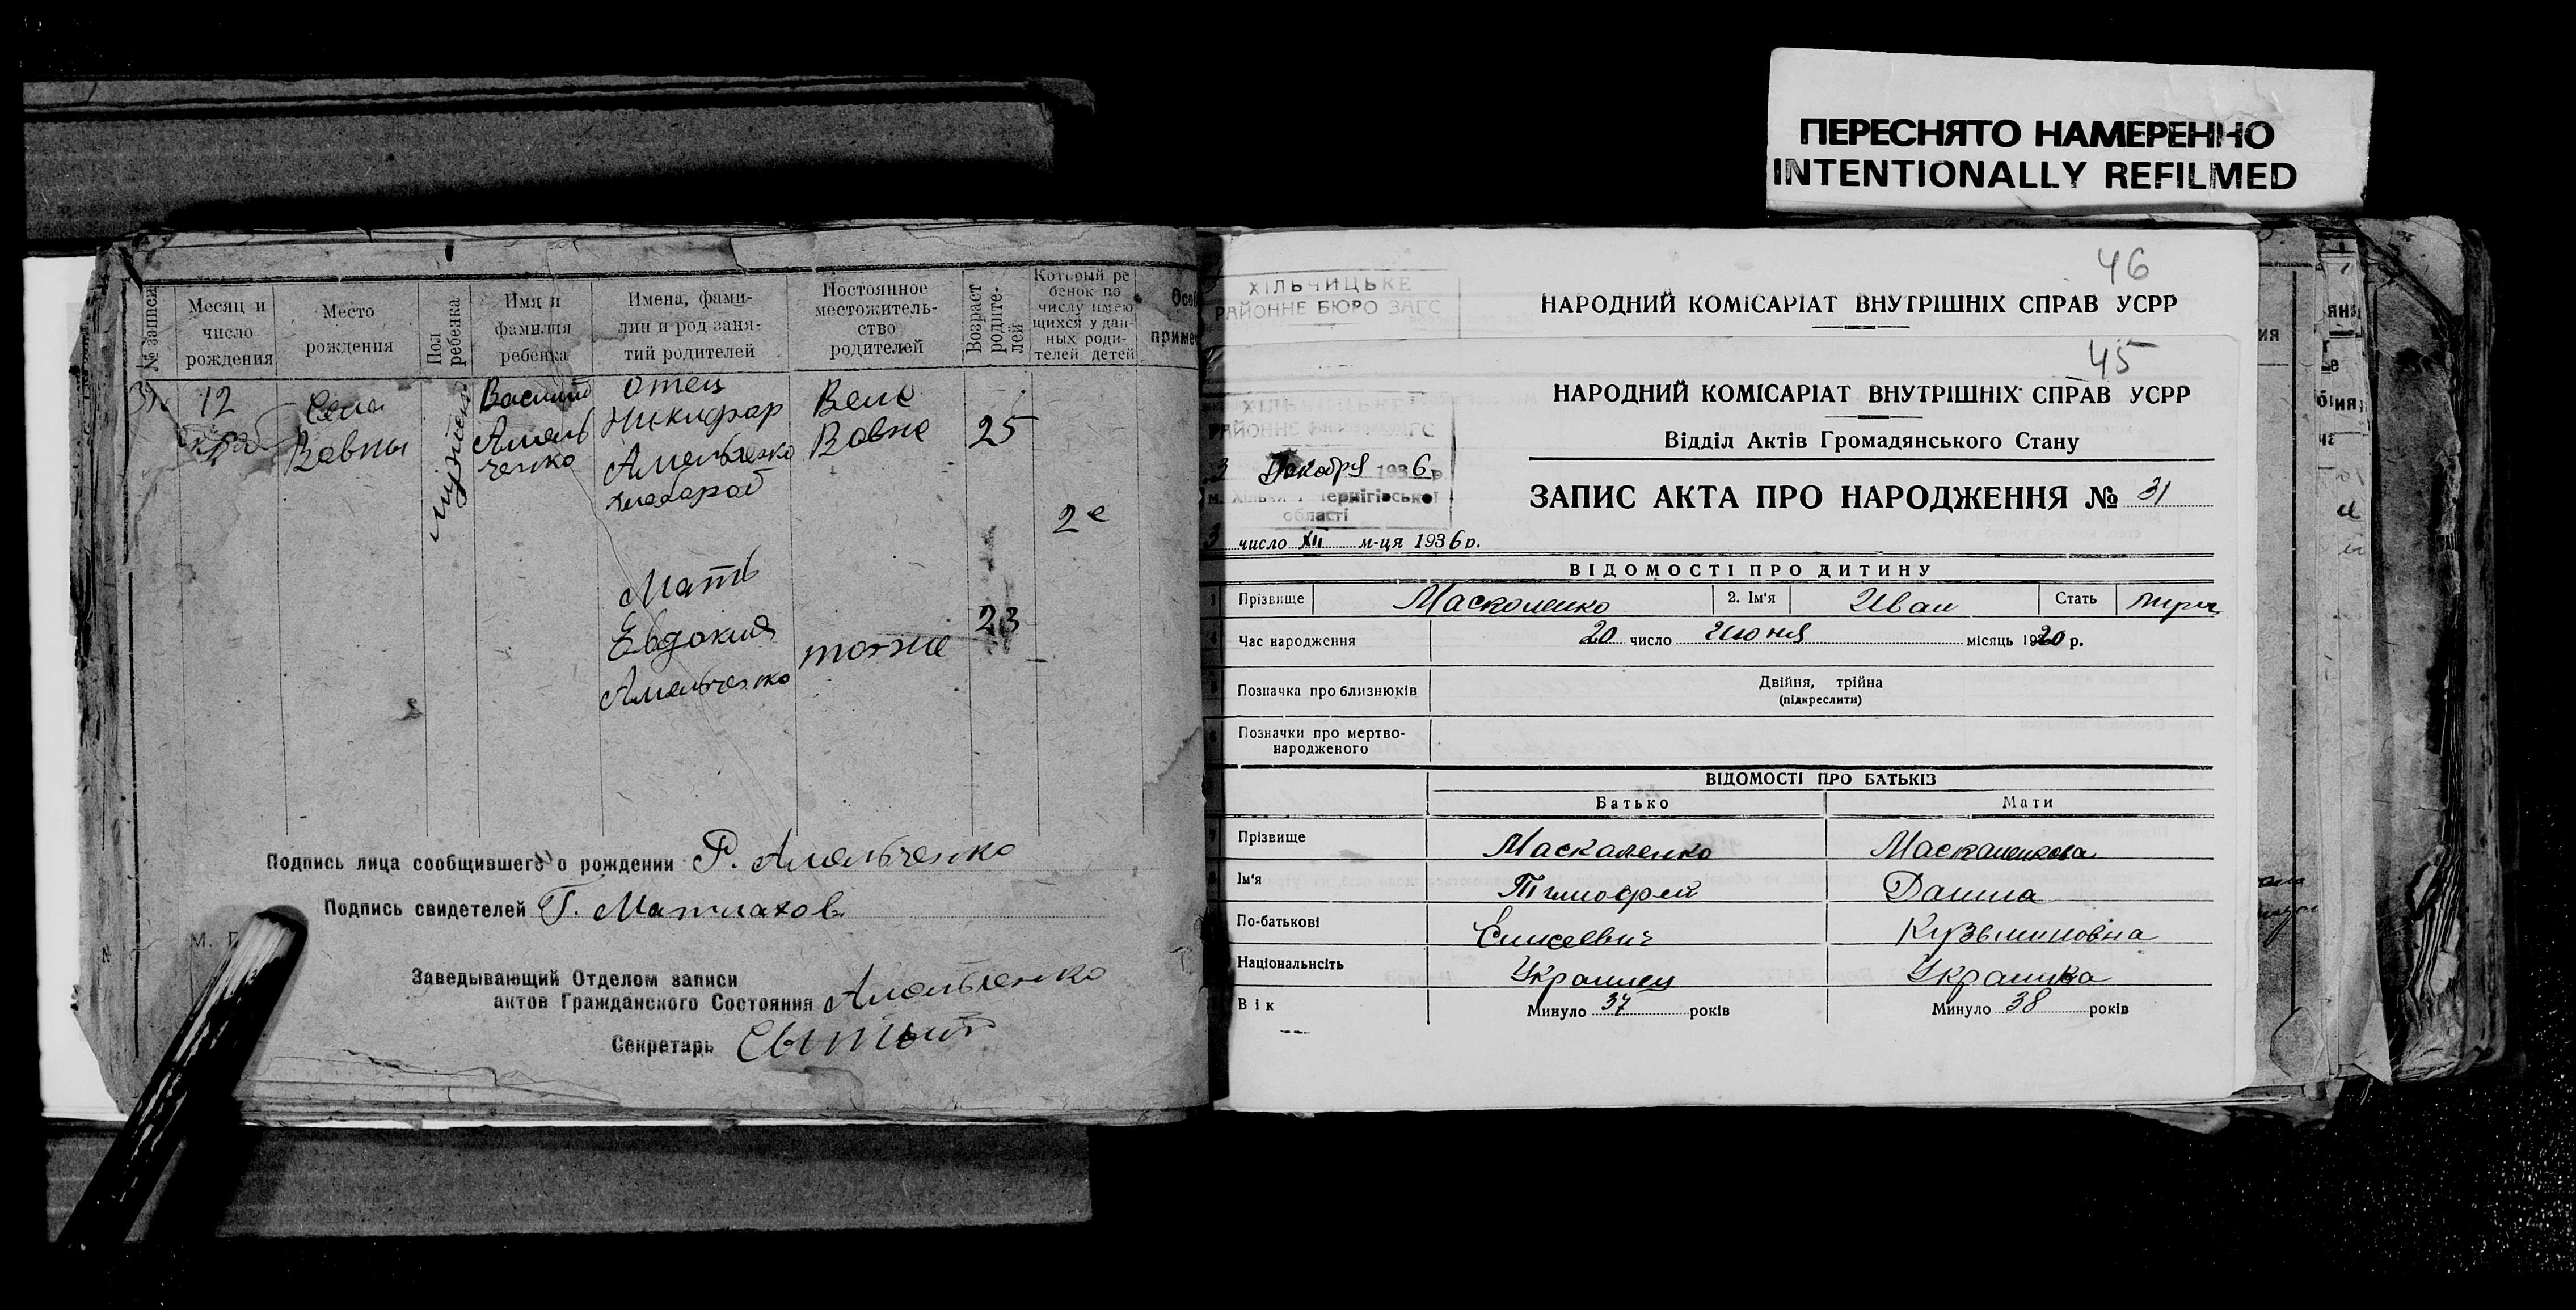 ПЕРЕСНЯТО НАМЕРЕННО
INTENTIONALLY REFILMED
№ записи
Месяц и число рождения
Место рождения
Пол ребенка
Имя и фамилия ребенка
Имена, фами-
лии и род заня-
тий родителей
Постоянное
местожитель-
ство
родителей
Возраст
родите-
лей
Который ре
бенок по
числу имею
щихся у дан-
ных роди-
телей детей
Осо
приме
31
12
Села
Вовны
мужской
Василий
Амель
ченко
отец
Никифор
Амельченко
хлебороб
Мать
Евдокия
Амельченко
Село
Вовно
тоже
25
23
2е
Подпись лица сообщившего о рождении Р. Амельченко
Подпись свидетелей Г. Матлахов
М. П
Заведывающий Отделом записи
актов Гражданского Состояния Амельченко
Секретарь
46
ХІЛЬЧИЦЬКЕ
РАЙОННЕ БЮРО ЗАГС
НАРОДНИЙ КОМІСАРІАТ ВНУТРІШНІХ СПРАВ УСРР
45
НАРОДНИЙ КОМІСАРІАТ ВНУТРІШНІХ СПРАВ УСРР
Відділ Актів Громадянського Стану
ЗАПИС АКТА ПРО НАРОДЖЕННЯ № 31
3 Декабря 1936 р.
області
3 число XII м-ця 1936 р.
ВІДОМОСТІ ПРО ДИТИНУ
Прізвище Маскаленко 2. Ім'я Иван Стать
Час народження 20 число Июня місяць 1920 р.
Позначка про близнюків Двійня, трійня
(підкреслити)
Позначки про мертво-
народженого
ВІДОМОСТІ ПРО БАТЬКІВ
Батько Мати
Прізвище Маскаленко Маскаленкова
Ім'я Тимофей
По-батькові Елисеевич Кузьминовна
Національність Украинец Украинка
Вік Минуло 37 років Минуло 38 років